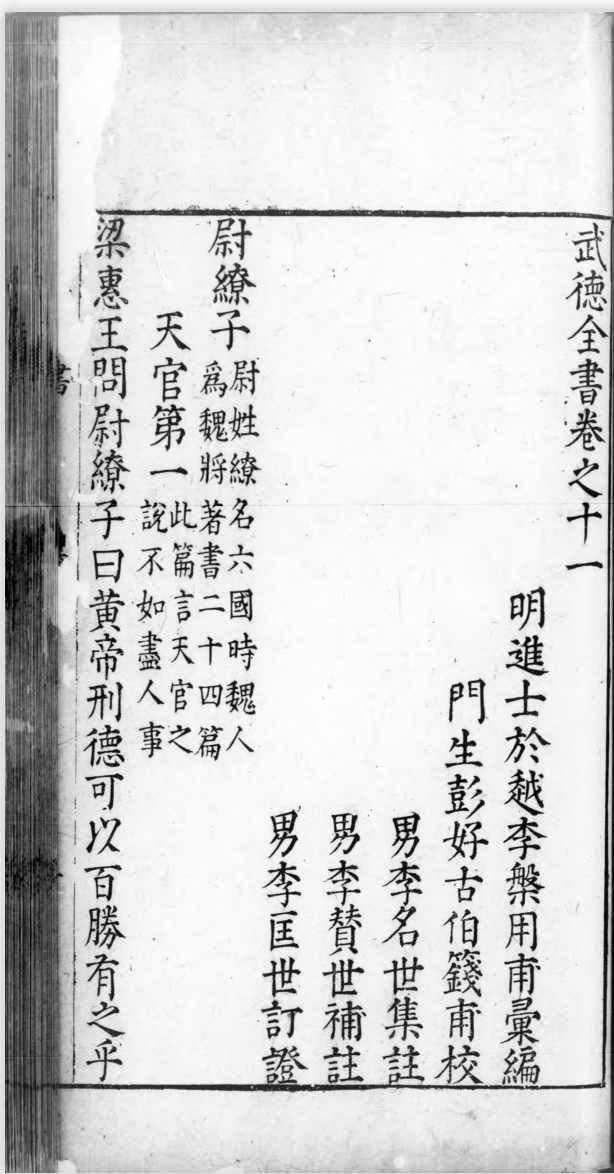 武徳全書卷之十一
明進士於越李槃用甫彙編
門生彭好古伯籛甫校
男李名世集註
男李贊世補註
男李匡世訂證
尉繚子
尉姓繚名六國時魏人
爲魏將著書二十四篇
天官第一
此篇言天官之
說不如盡人事
梁惠王問尉繚子曰黃帝刑德可以百勝有之乎
書